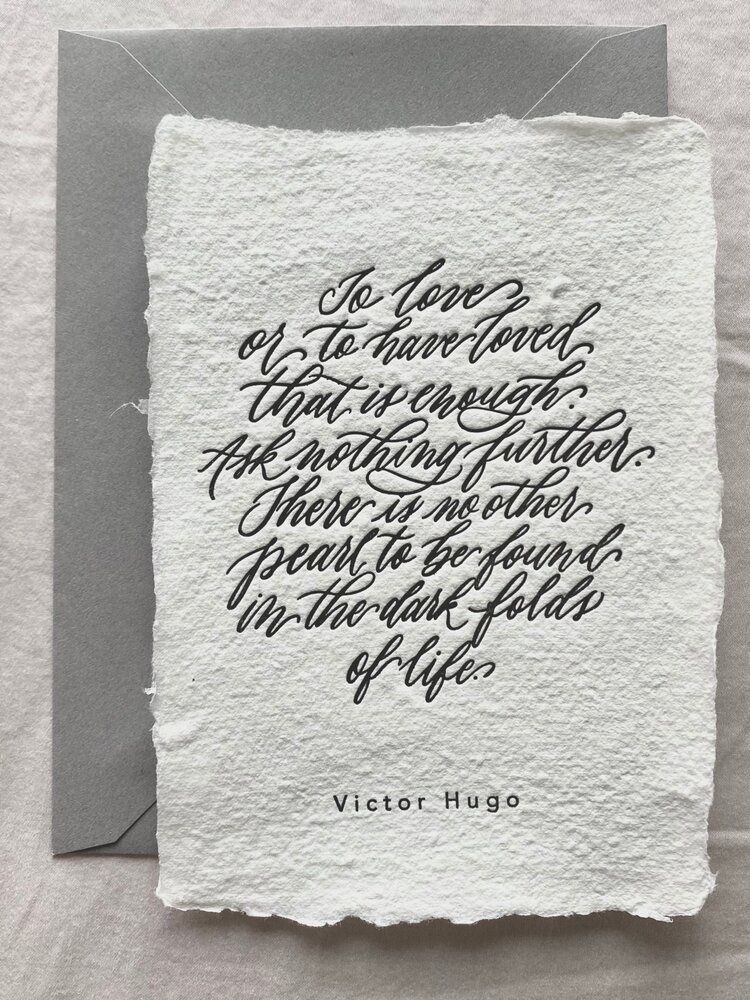 To love
or to have loved
that is enough.
Ask nothing further.
There is no other
pearl to be found
in the dark folds
of life.
Victor Hugo